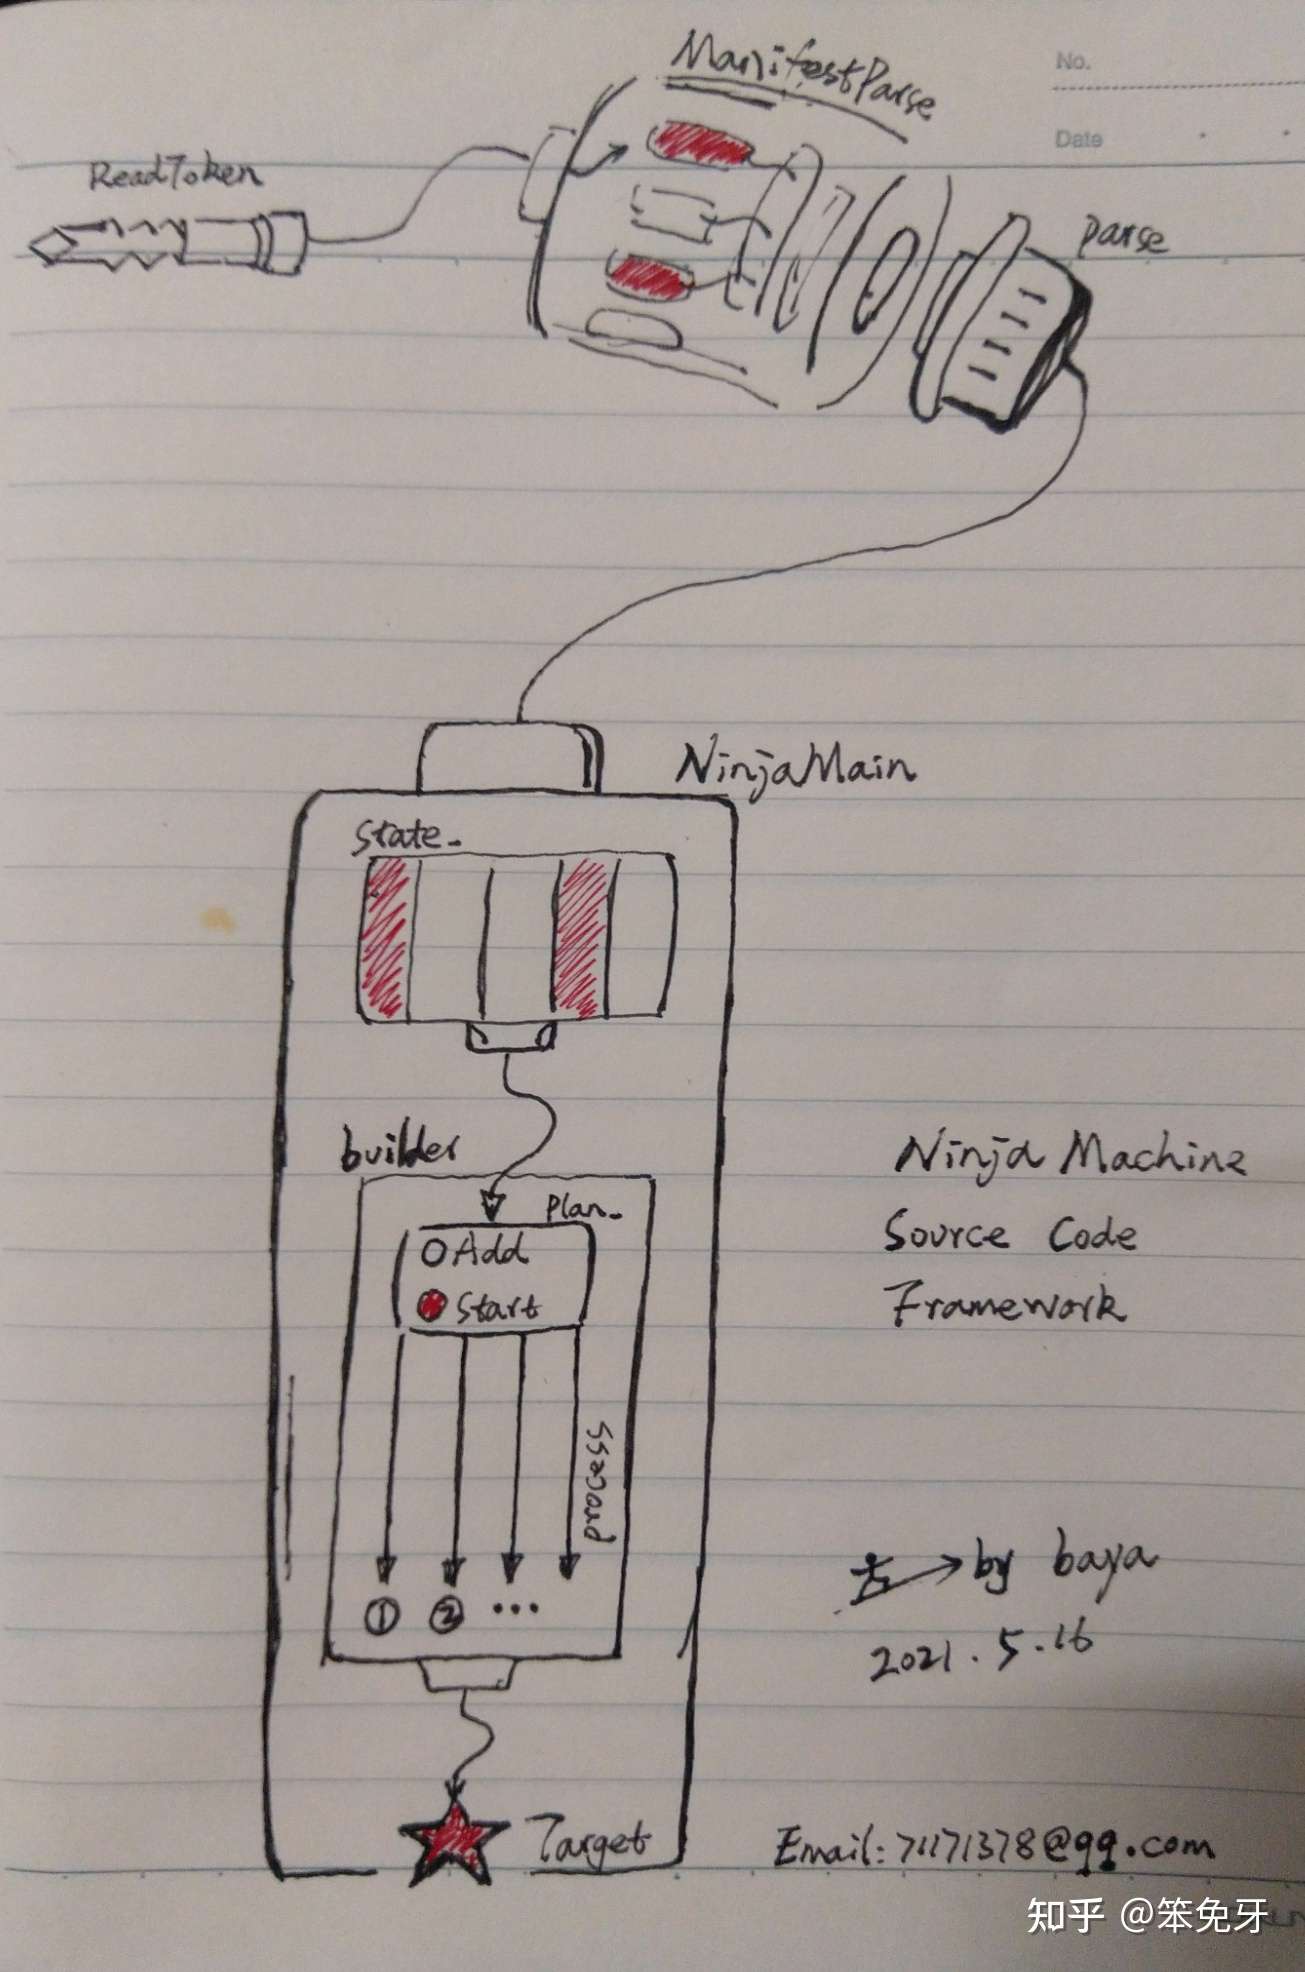 ManifestParse
No.
Date
ReadToken
parse
NinjaMain
state_
builder
plan_
Add
Start
process
① ② ...
Ninja Machine
Source Code
Framework
by baya
2021.5.16
Target
Email: 71171378@qq.com
知乎 @笨兔牙